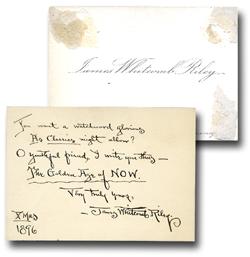 James Whitcomb Riley.
You want a watchword glorious
As Classics might allow?
O youthful friend, I write you this—
The Golden Age of NOW.
Very truly yours,
—James Whitcomb Riley.
Xmas
1896